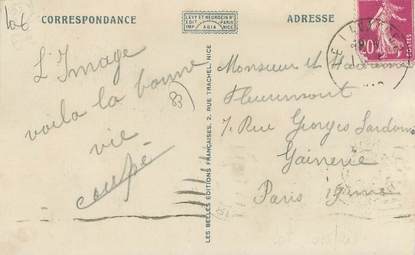 10€
CORRESPONDANCE
LEVY ET NEURDEIN Rs
EDIT PARIS
IMP AGIA NICE
ADRESSE
20
POSTES
L'Image
voila la bonne
vie
coupé
83
LES BELLES EDITIONS FRANÇAISES, 2, RUE TRACHEL, NICE
Monsieur et Madame
Fleurimont
7. Rue Georges Sardou
Paris